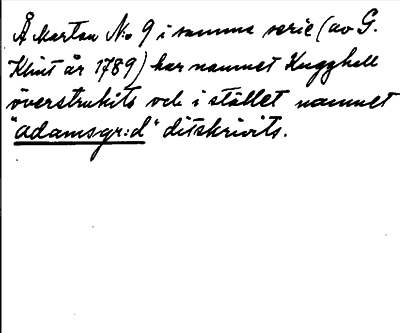 Å kartan No 9 i samma serie (av G.
Klint år 1789) har namnet Kugghall
överstrukits och i stället namnet
"adamsgr:d" ditskrivits.